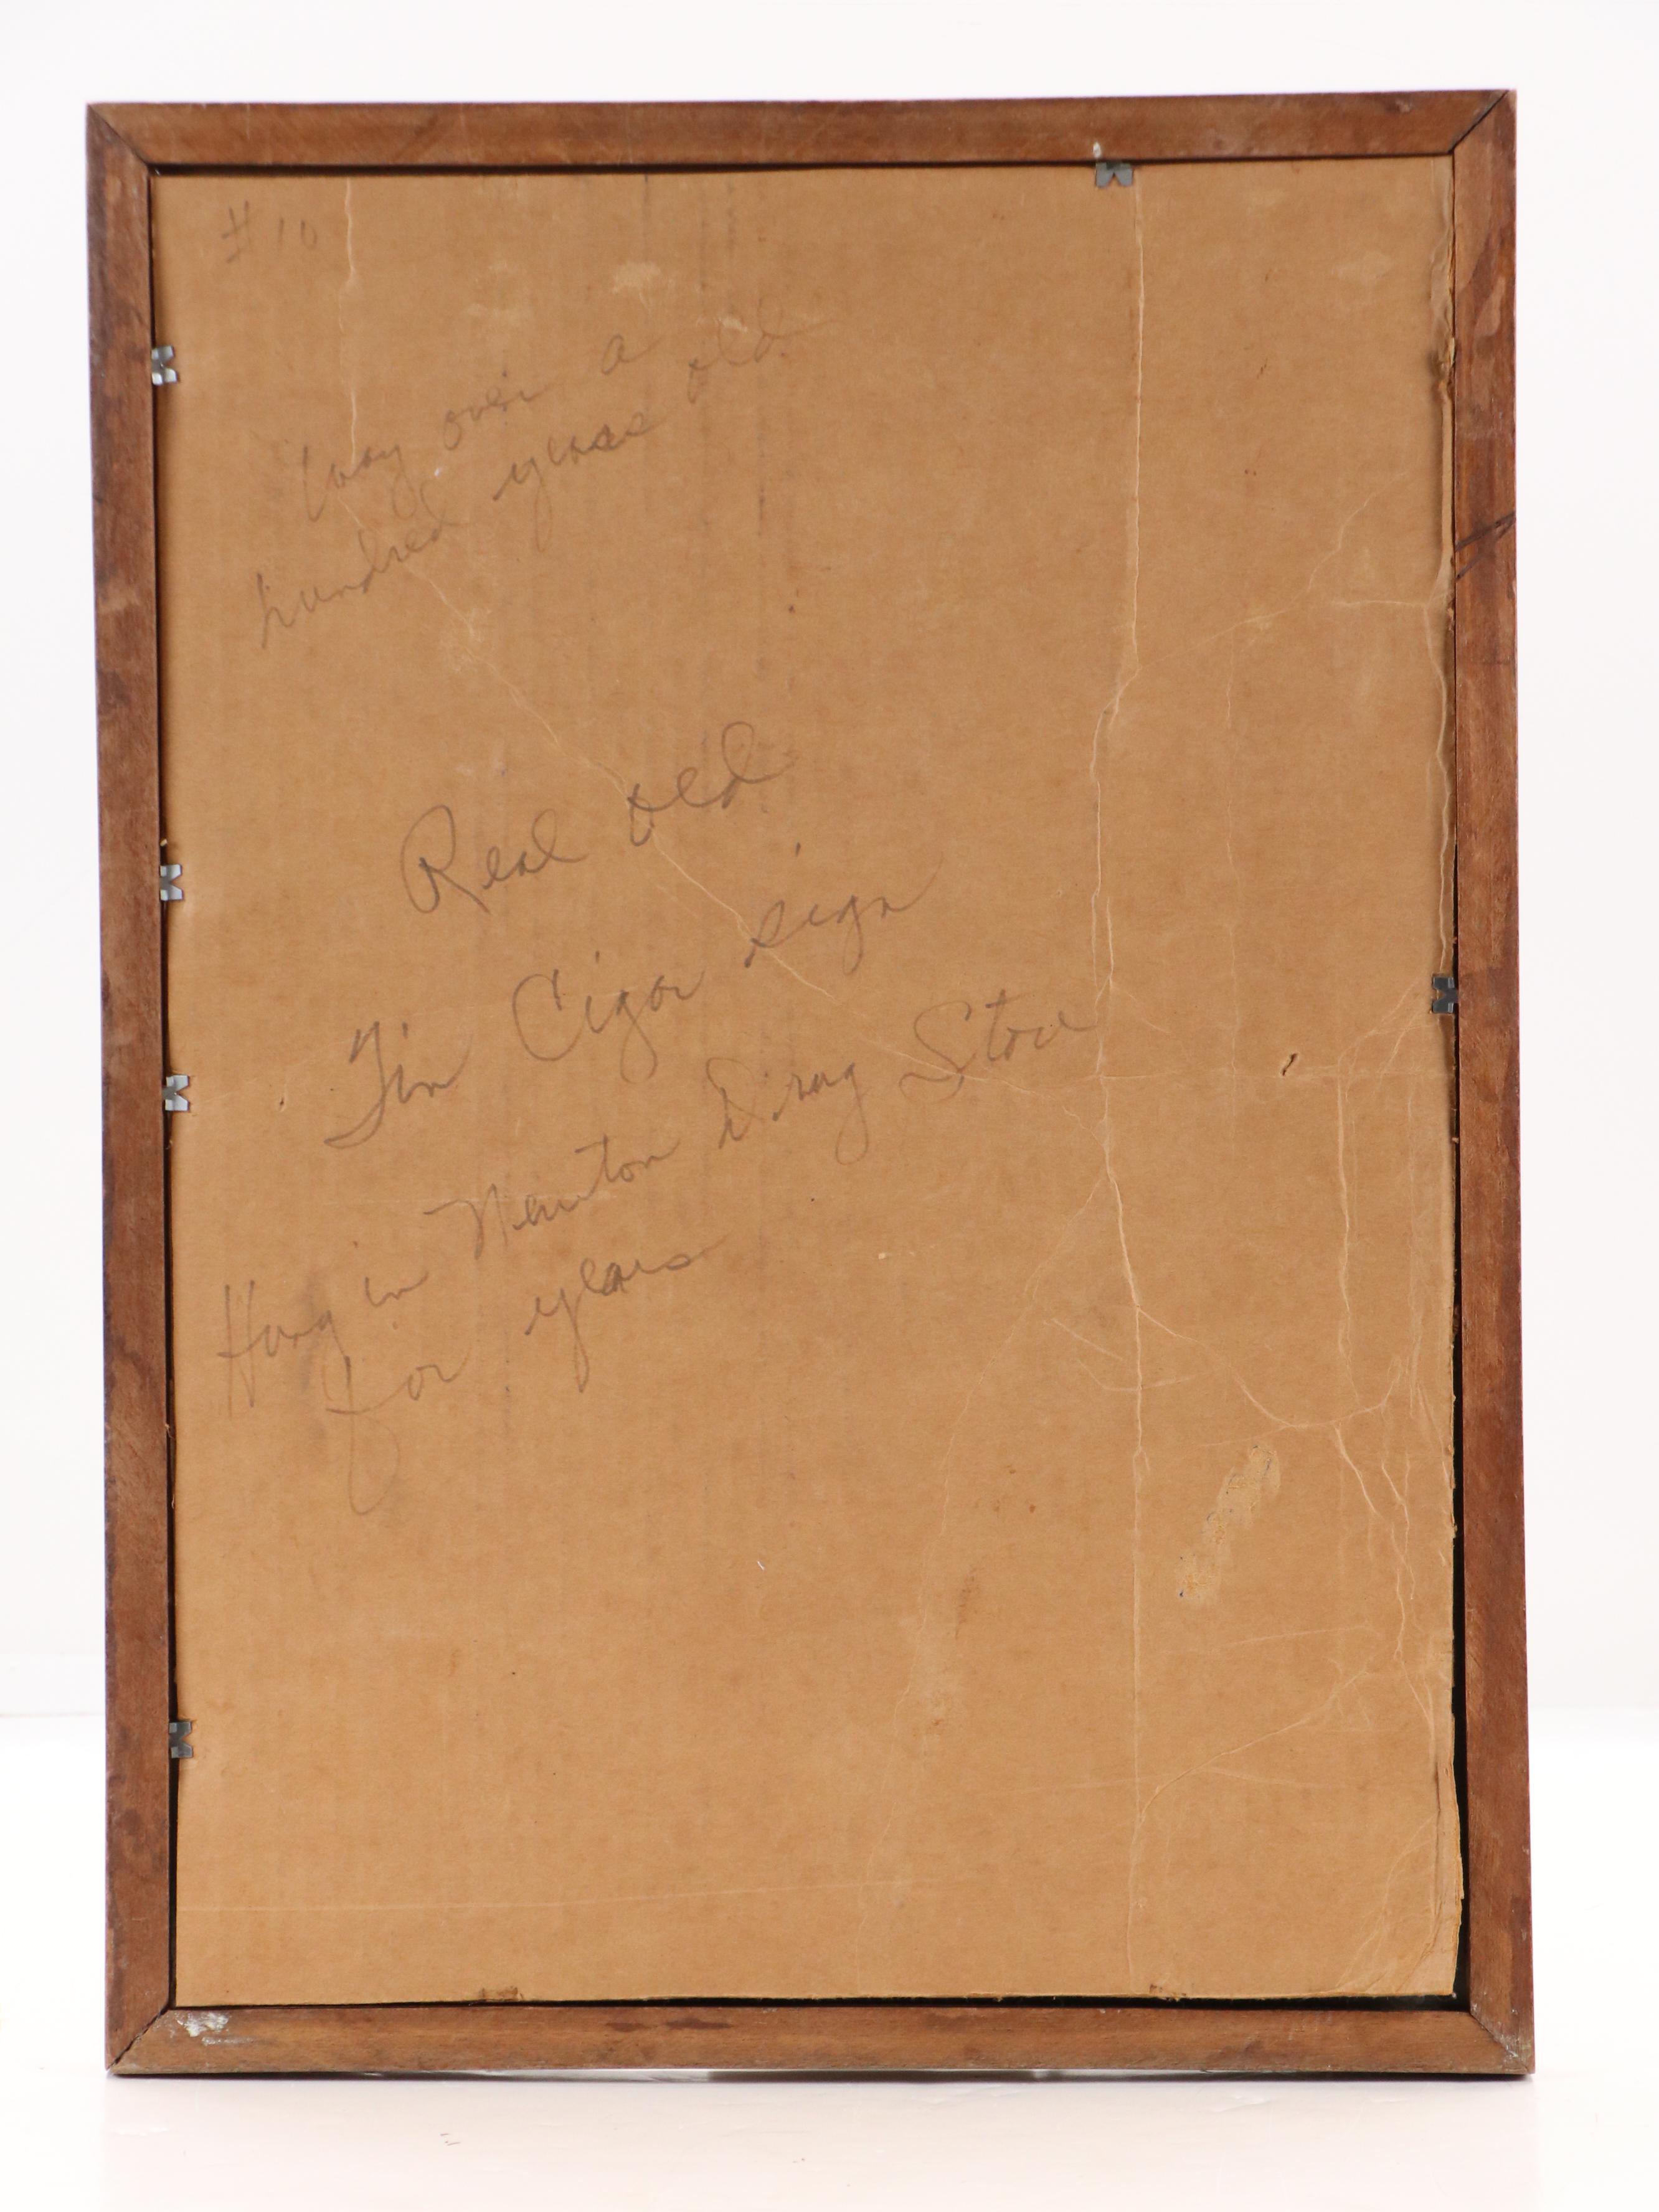 # 10
Way over a
hundred years old
Real old
Tin Cigar sign
Hang in Newton Drug Store
for years